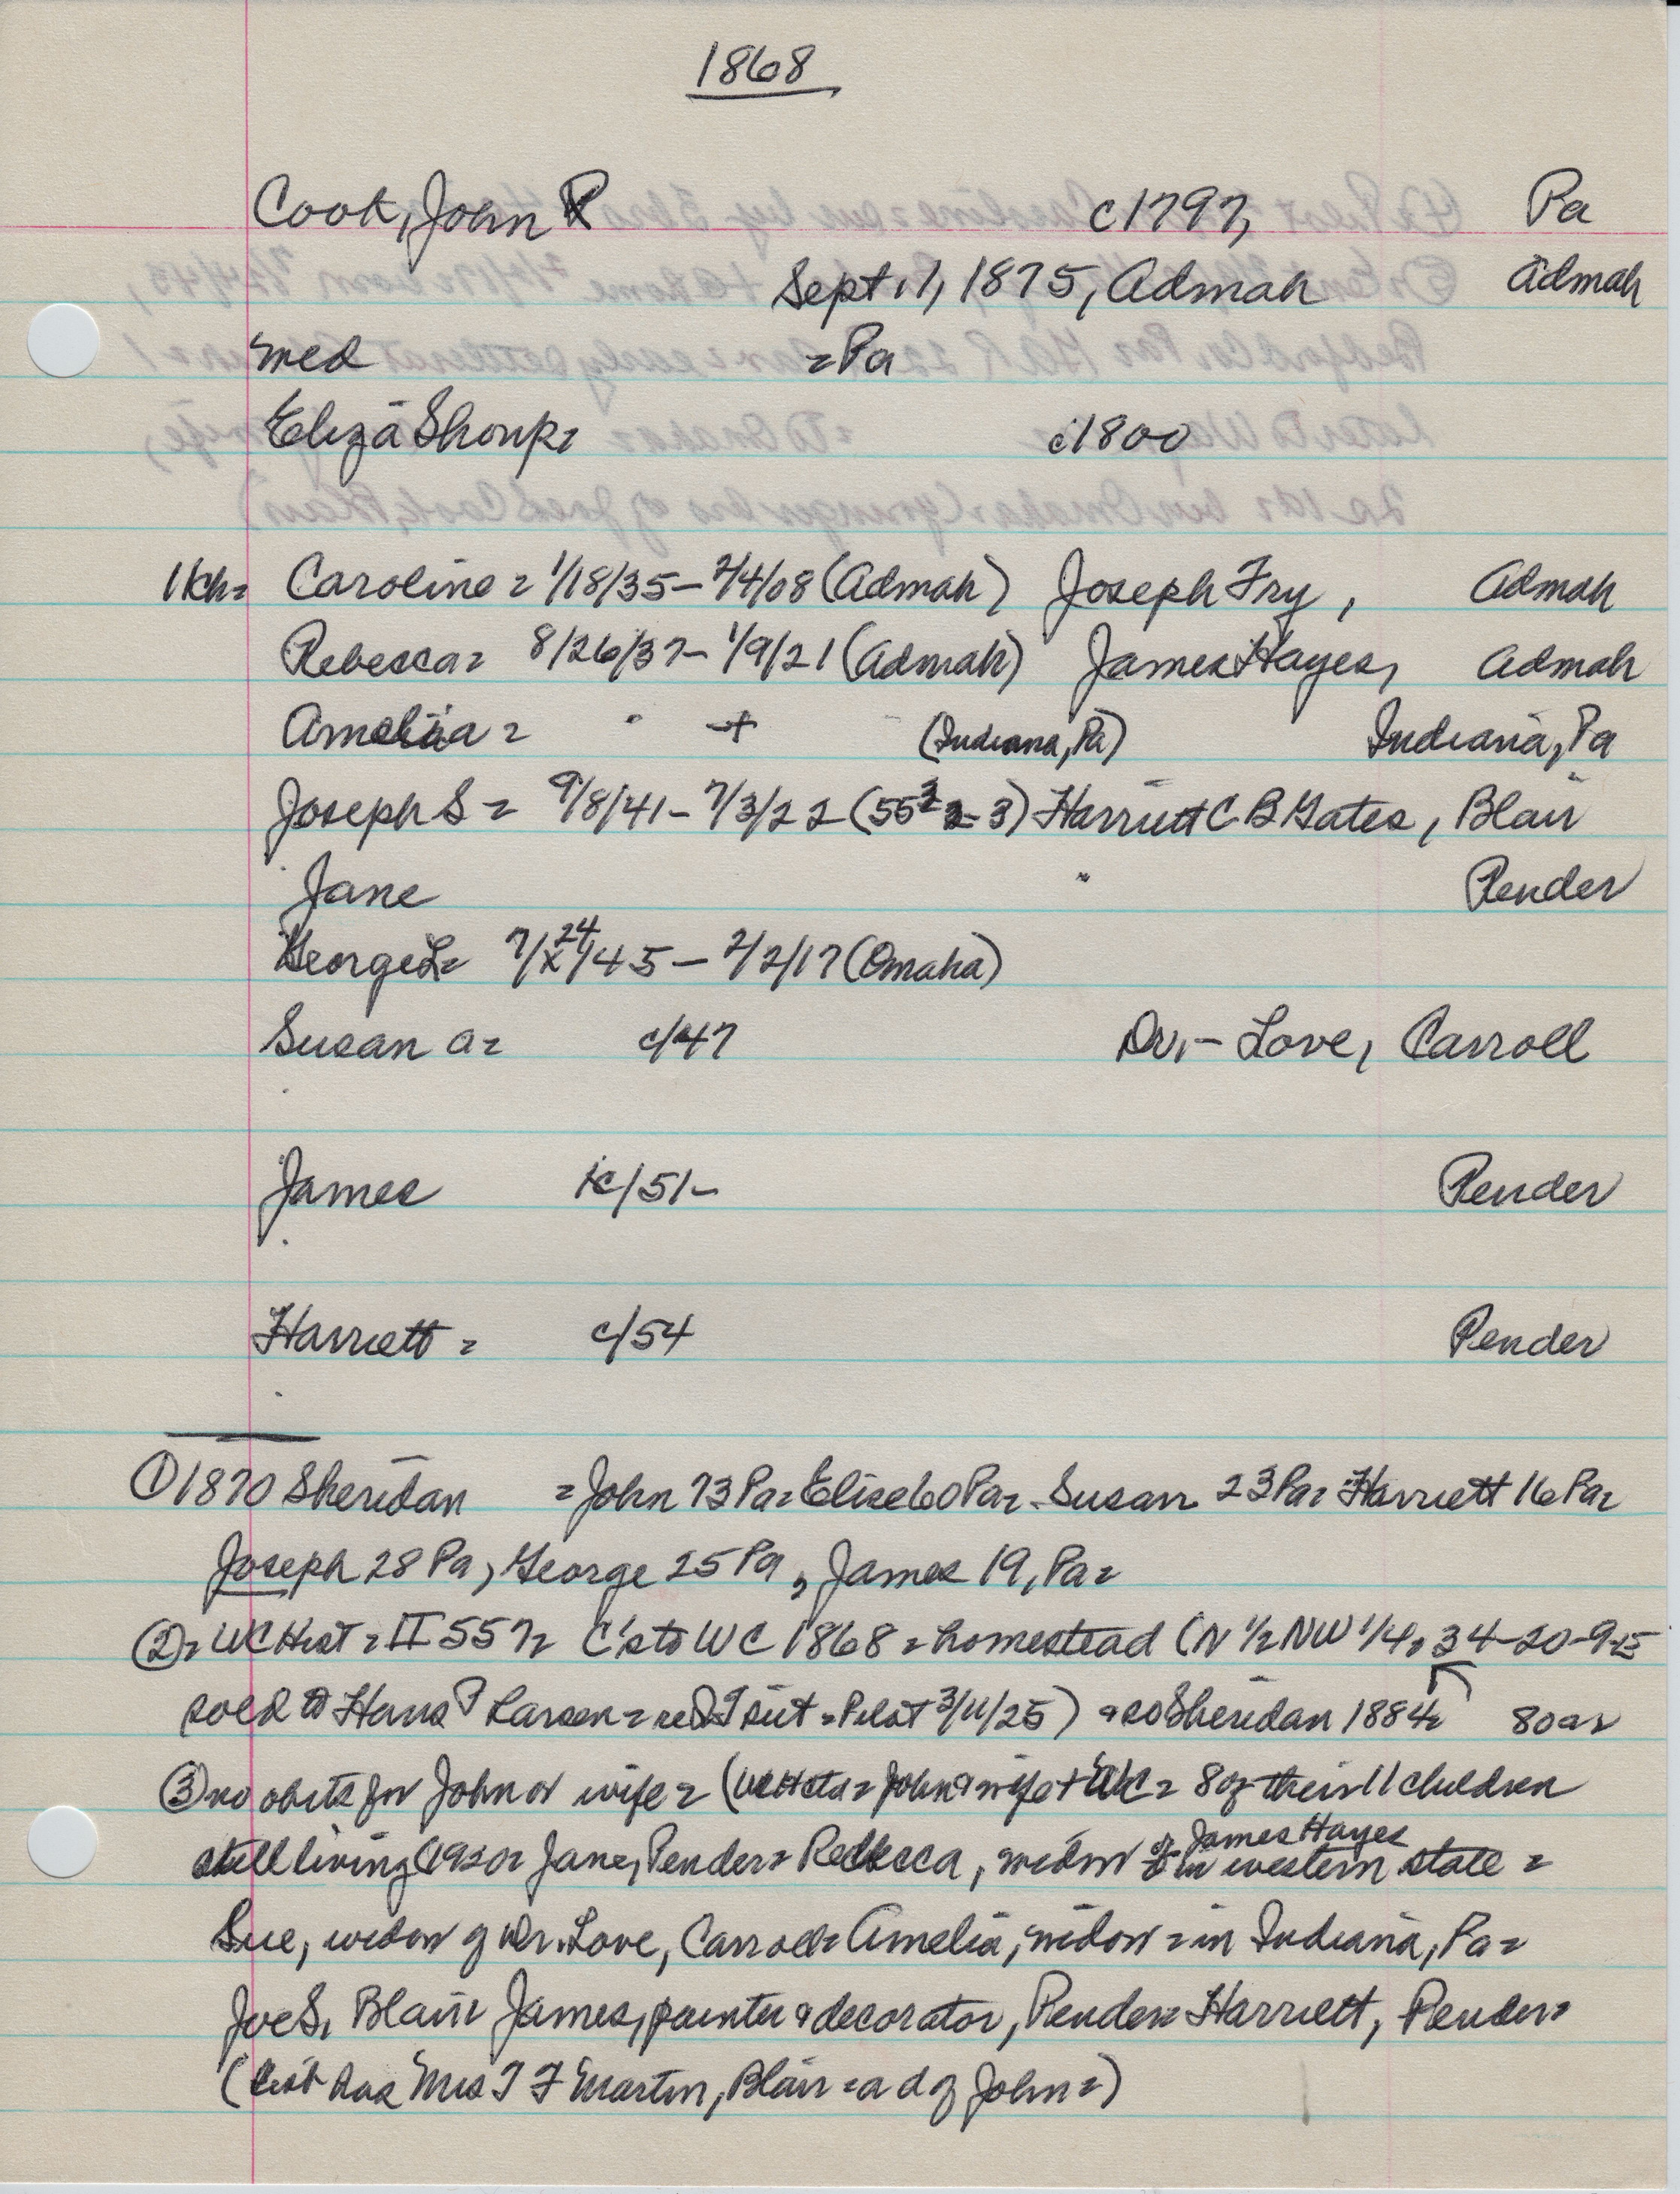 1868
Cook, John R c1797, Pa
Sept. 1, 1875, Admah Admah
med =Pa
Eliza Shoup= c1800
11ch= Caroline = 1/18/35 - 2/4/08 (Admah) Joseph Fry, Admah
Rebecca= 8/26/37 - 1/9/21 (Admah) James Hayes, Admah
Amelia = + (Indiana, Pa) Indiana, Pa
Joseph S = 9/8/41 - 7/3/22 Harriett C B Gates, Blair
Jane " Pender
George L= 7/24/45 - 2/2/17 (Omaha)
Susan A= c/47 Dr. - Love, Carroll
James c/51 - Pender
Harriett = c/54 Pender
① 1870 Sheridan =John 73 Pa= Elise 60 Pa= Susan 23 Pa= Harriett 16 Pa=
Joseph 28 Pa, George 25 Pa, James 19, Pa=
②= WC Hist = II 557= C's to WC 1868 = homestead (N 1/2 NW 1/4, 34-20-9=
sold to Hans P Larsen = Pilot 3/11/25) Sheridan 1884= 80a=
③ no obits for John or wife = John & wife + 8 of their 11 children
still living (1920= Jane, Pender= Rebecca, widow of James Hayes in western state =
Sue, widow of Dr. Love, Carroll= Amelia, widow = in Indiana, Pa=
Joe S, Blair= James, painter & decorator, Pender= Harriett, Pender=
(list has Mrs T F Martin, Blair =a d of John=)